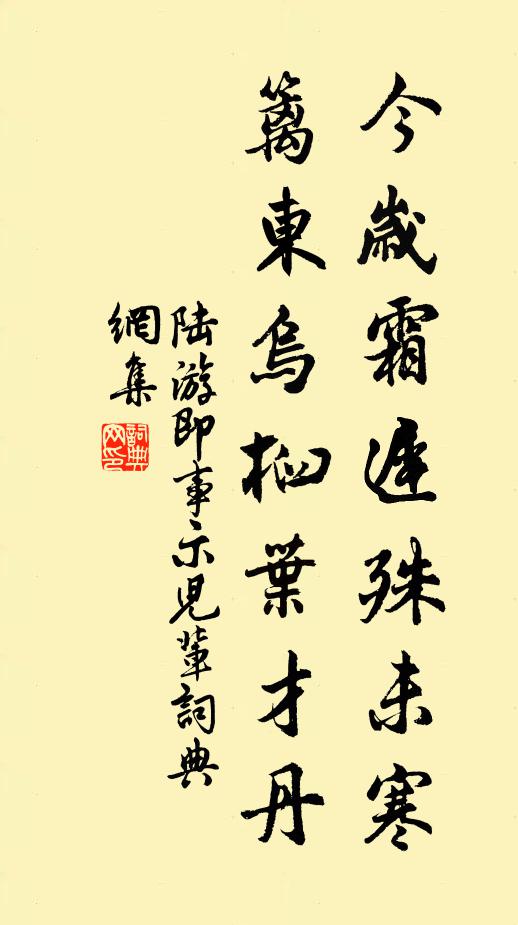 今歲霜遲殊未寒
籬東烏桕葉才丹
陆游即事示児輩詞典
網集
詞典
网印